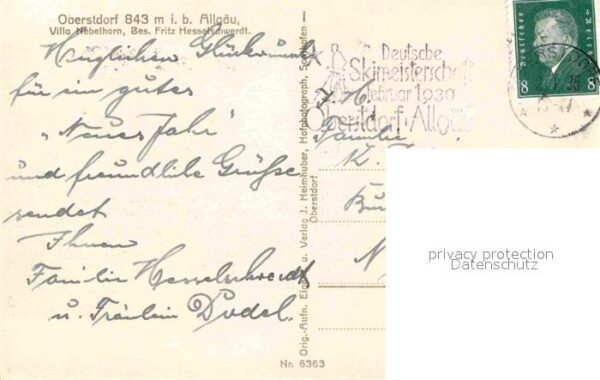 Oberstdorf 843 m i. b. Allgäu,
Villa Nebelhorn, Bes. Fritz Hesselschwerdt.
Herzlichen Glückwunsch
für ein gutes
"Neues Jahr"
und freundliche Grüße
sendet
Ihnen
Familie Hesselschwerdt
u. Fräulein Dodel.
Orig.-Aufn. Eigt. u. Verlag J. Heimhuber, Hofphotograph, Sonthofen-
Oberstdorf
Nr. 6363
Deutsche
Skimeisterschaft
Februar 1930
Oberstdorf-Allgäu
Deutsches Reich
8 8
Familie
K.
N
privacy protection
Datenschutz